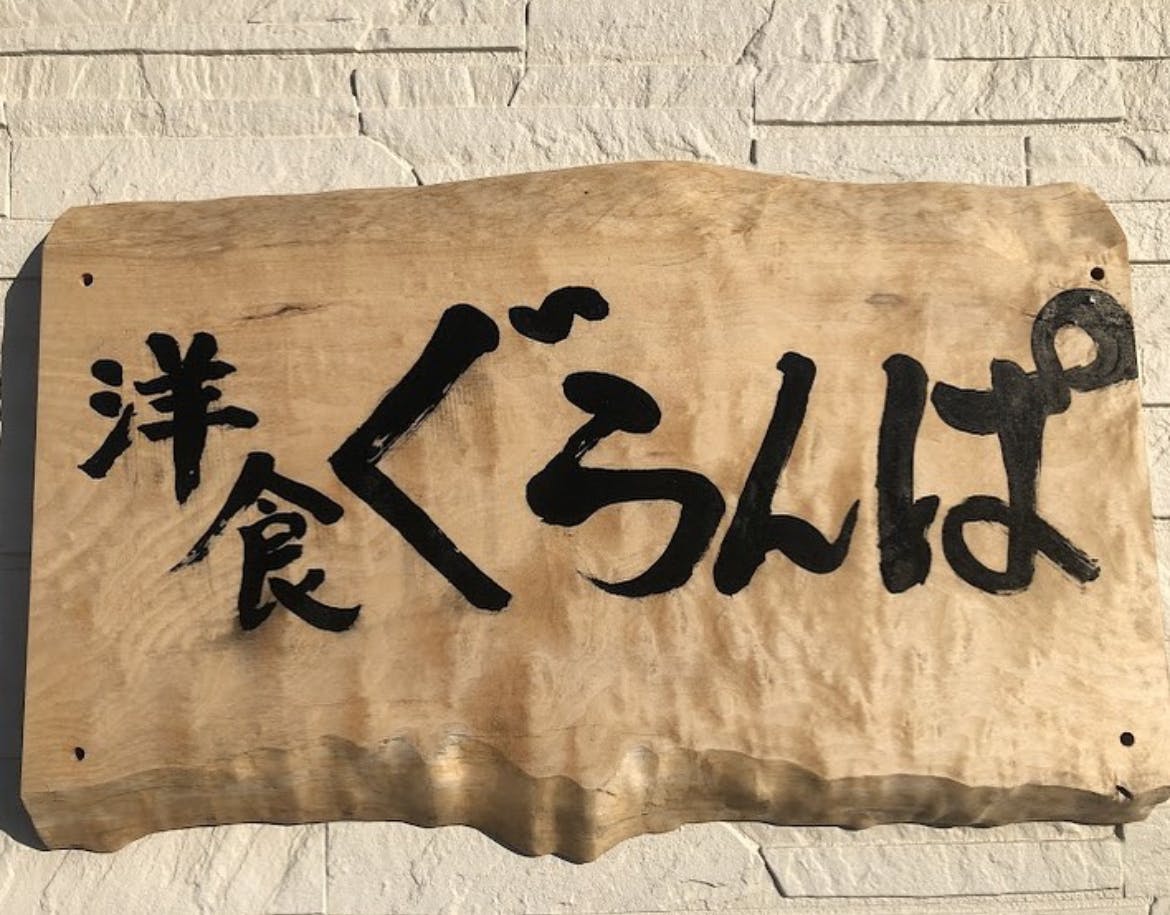 洋食ぐらんぱ